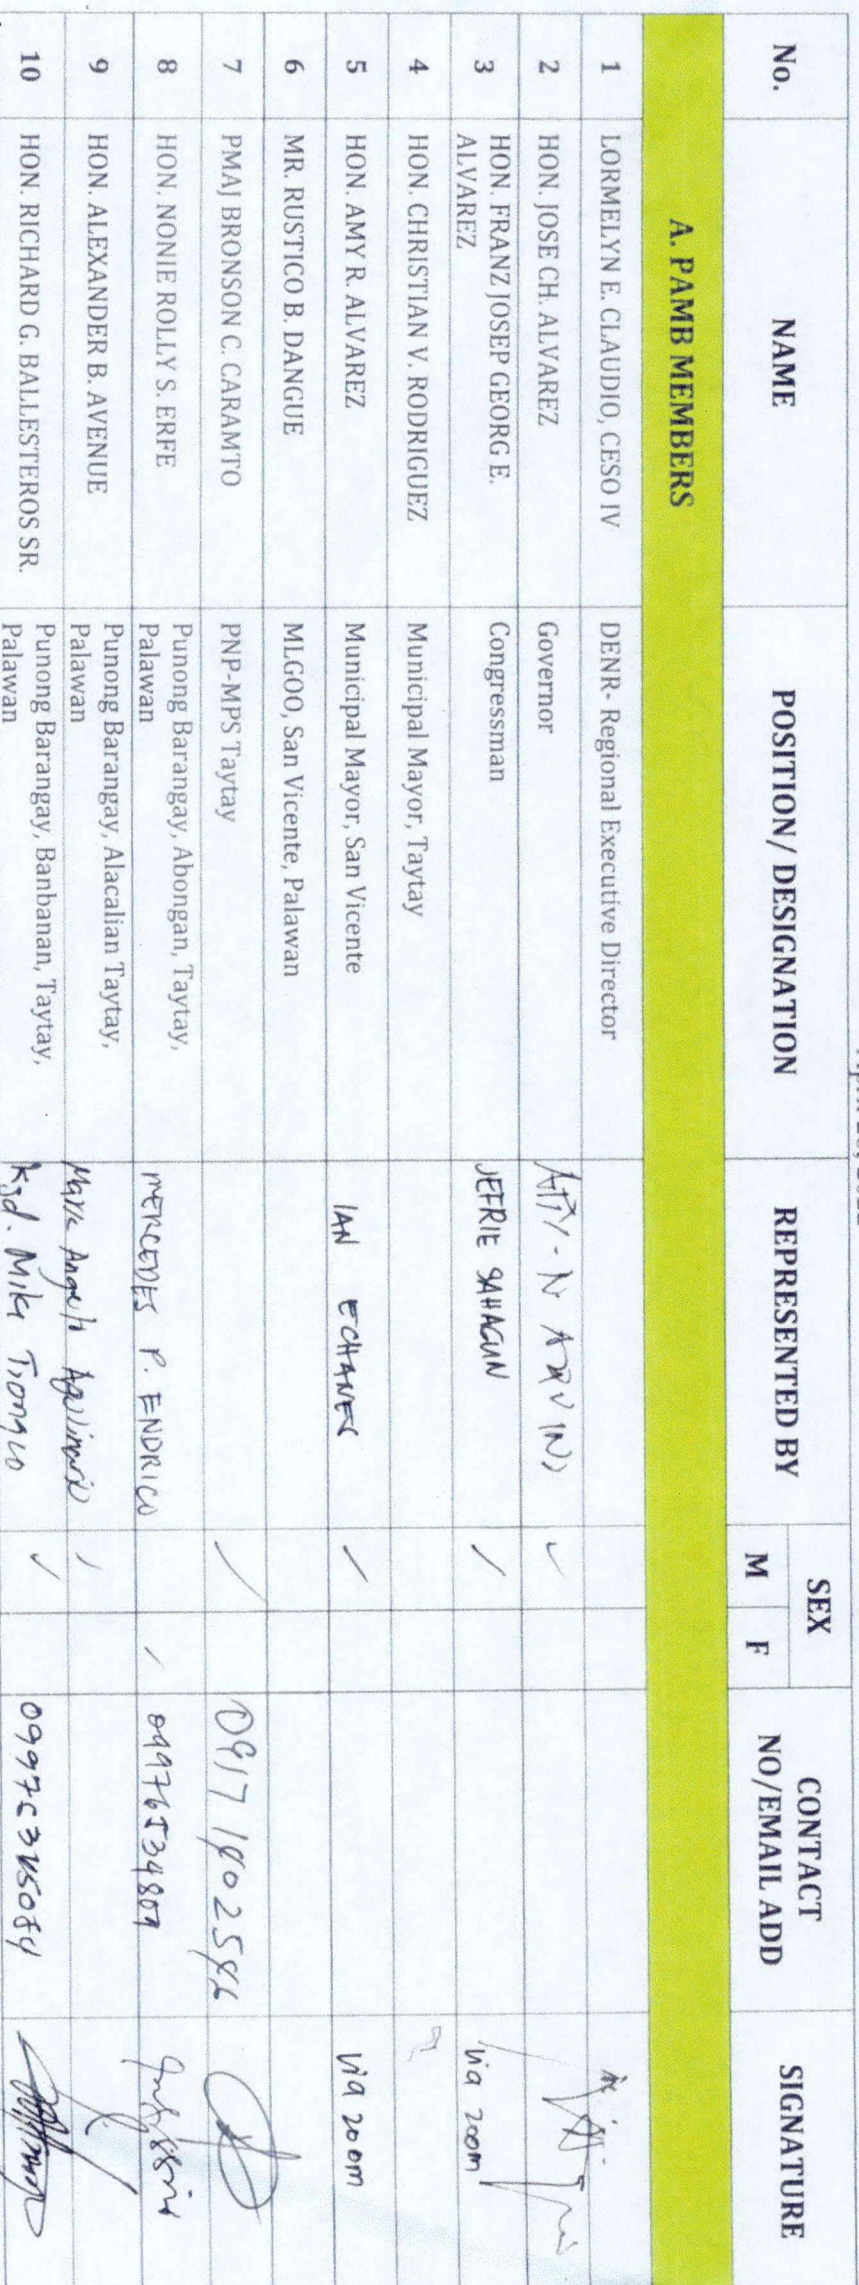 No. NAME POSITION/ DESIGNATION REPRESENTED BY SEX CONTACT NO/EMAIL ADD SIGNATURE
M F
A. PAMB MEMBERS
1 LORMELYN E. CLAUDIO, CESO IV DENR- Regional Executive Director
2 HON. JOSE CH. ALVAREZ Governor ATTY. N
3 HON. FRANZ JOSEP GEORG E. Congressman JEFRIE SAHAGUN / via zoom
ALVAREZ
4 HON. CHRISTIAN V. RODRIGUEZ Municipal Mayor, Taytay
5 HON. AMY R. ALVAREZ Municipal Mayor, San Vicente IAN / via zoom
6 MR. RUSTICO B. DANGUE MLGOO, San Vicente, Palawan
7 PMAJ BRONSON C. CARAMTO PNP-MPS Taytay /
8 HON. NONIE ROLLY S. ERFE Punong Barangay, Abongan, Taytay, MERCEDES P. ENDRICO /
Palawan
9 HON. ALEXANDER B. AVENUE Punong Barangay, Alacalian Taytay, /
Palawan
10 HON. RICHARD G. BALLESTEROS SR. Punong Barangay, Banbanan, Taytay, Kgd. Mike Tiongco ✓
Palawan